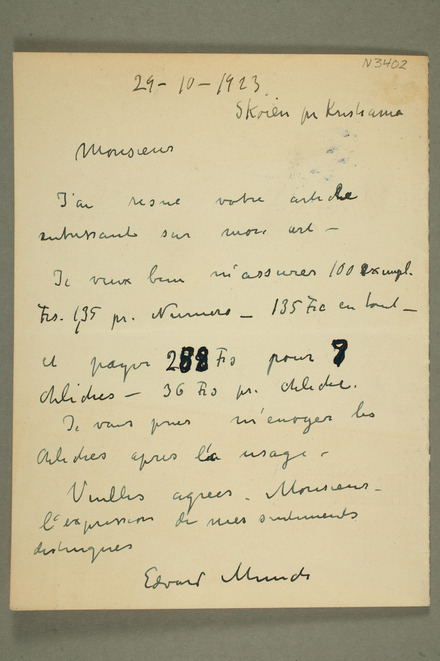 N 3402
29-10-1923
Skoien pr Kristiania
Monsieur
J'ai resue votre article
interessante sur mon art –
Je veux bien m'assurer 100 exempl.
Frs. 1,35 pr. Numero – 135 Frc en tout –
et payer 288 Frs pour 8
clichés – 36 Frs pr. cliché.
Je vous pries m'envoyer les
clichés apres l'a usage –
Veulles agrees – Monsieur –
l'expression de mes sentiments
distingues
Edvard Munch